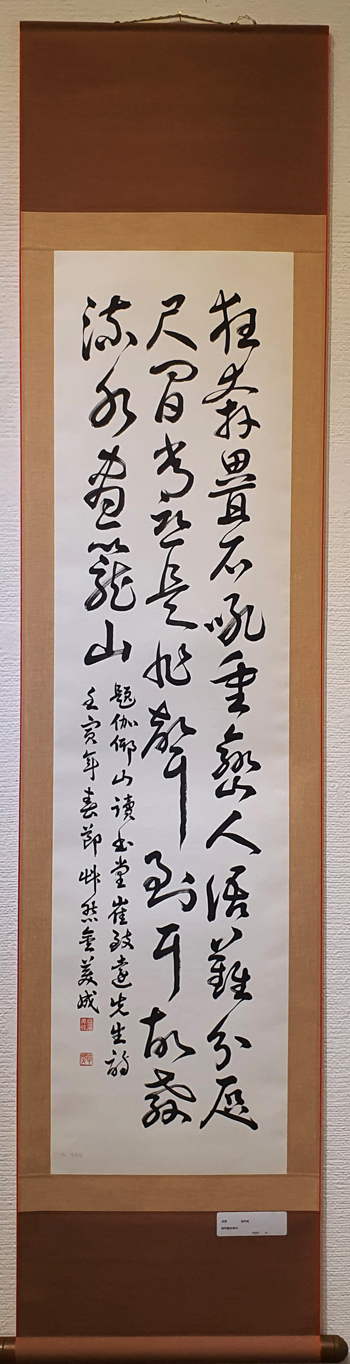 狂奔疊石吼重巒人語難分咫
尺間常恐是非聲到耳故敎
流水盡籠山
題伽倻山讀書堂崔致遠先生詩
壬寅年春節艸然金美成